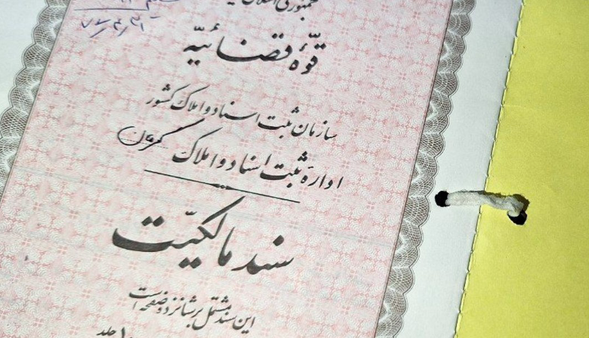 جمهوری اسلامی
قوّه قضائیّه
سازمان ثبت اسناد و املاک کشور
اداره ثبت اسناد و املاک
سند مالکیّت
این سند مشتمل بر شانزده صفحه است
جلد